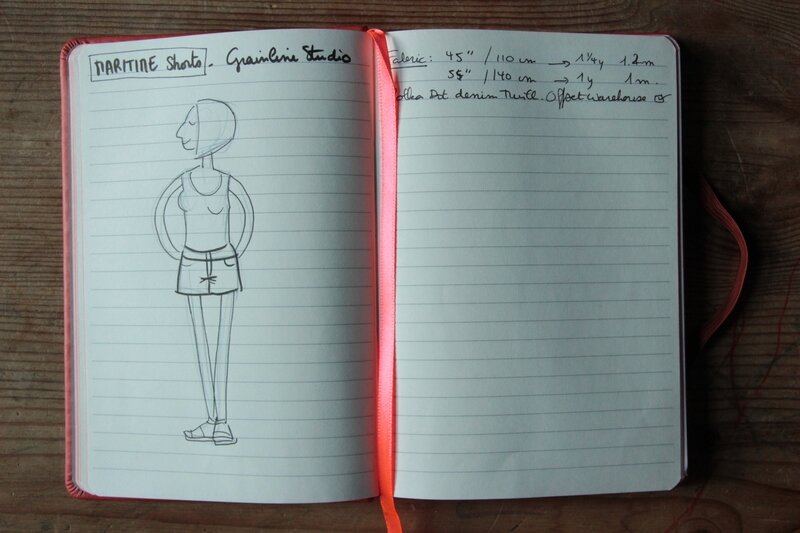 MARITIME Shorts. Grainline Studio
Fabric: 45" / 110 cm → 1 1/4y 1.2m
55" / 140 cm → 1y 1m.
Polka Dot denim Twill. Offset Warehouse